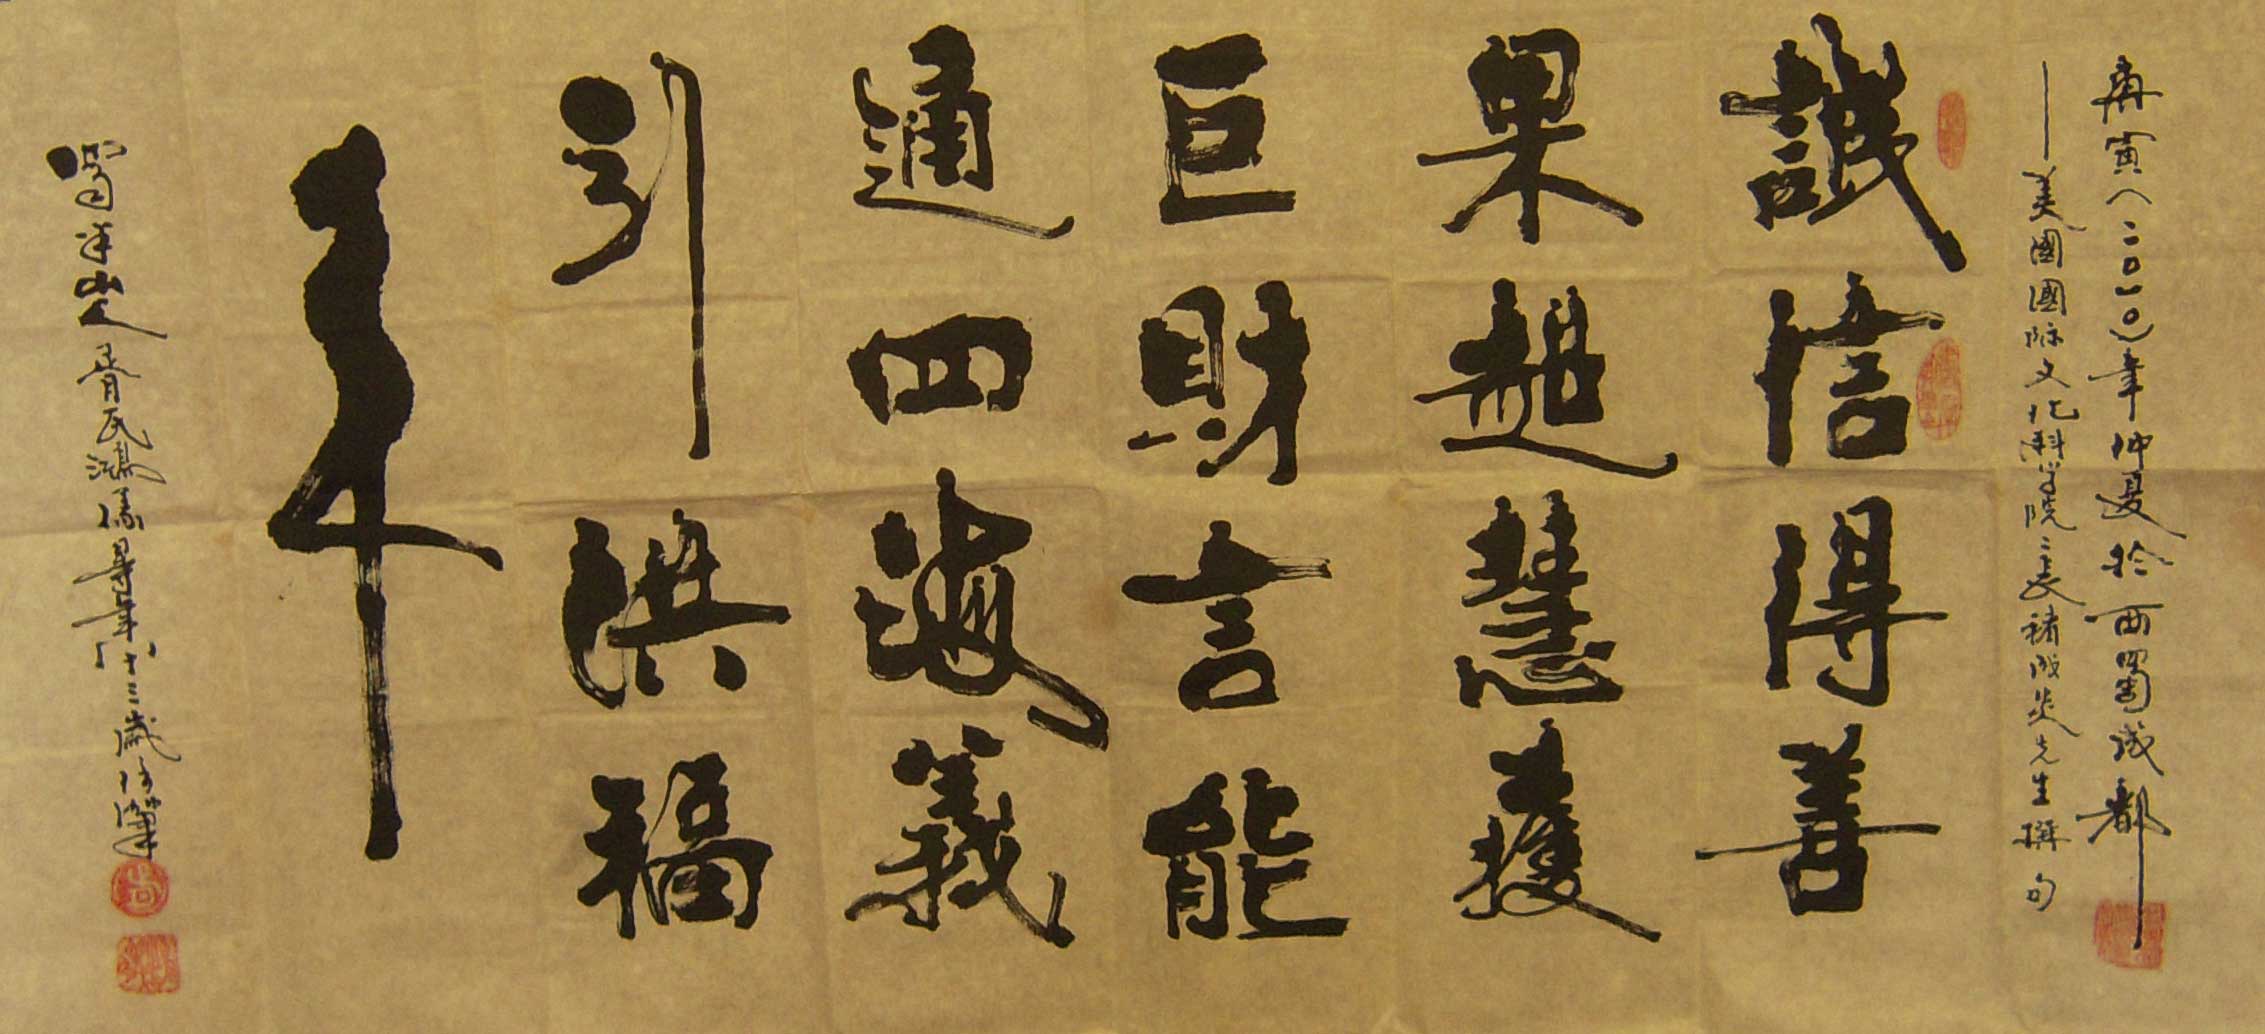 庚寅(二〇一〇)年仲夏於西蜀成都
—美國國际文化科学院院長褚成炎先生撰句
誠信得善
果超慧獲
巨財言能
通四海義
引洪福
来
蜀羊山人胥民鴻儀晷年八十三歲